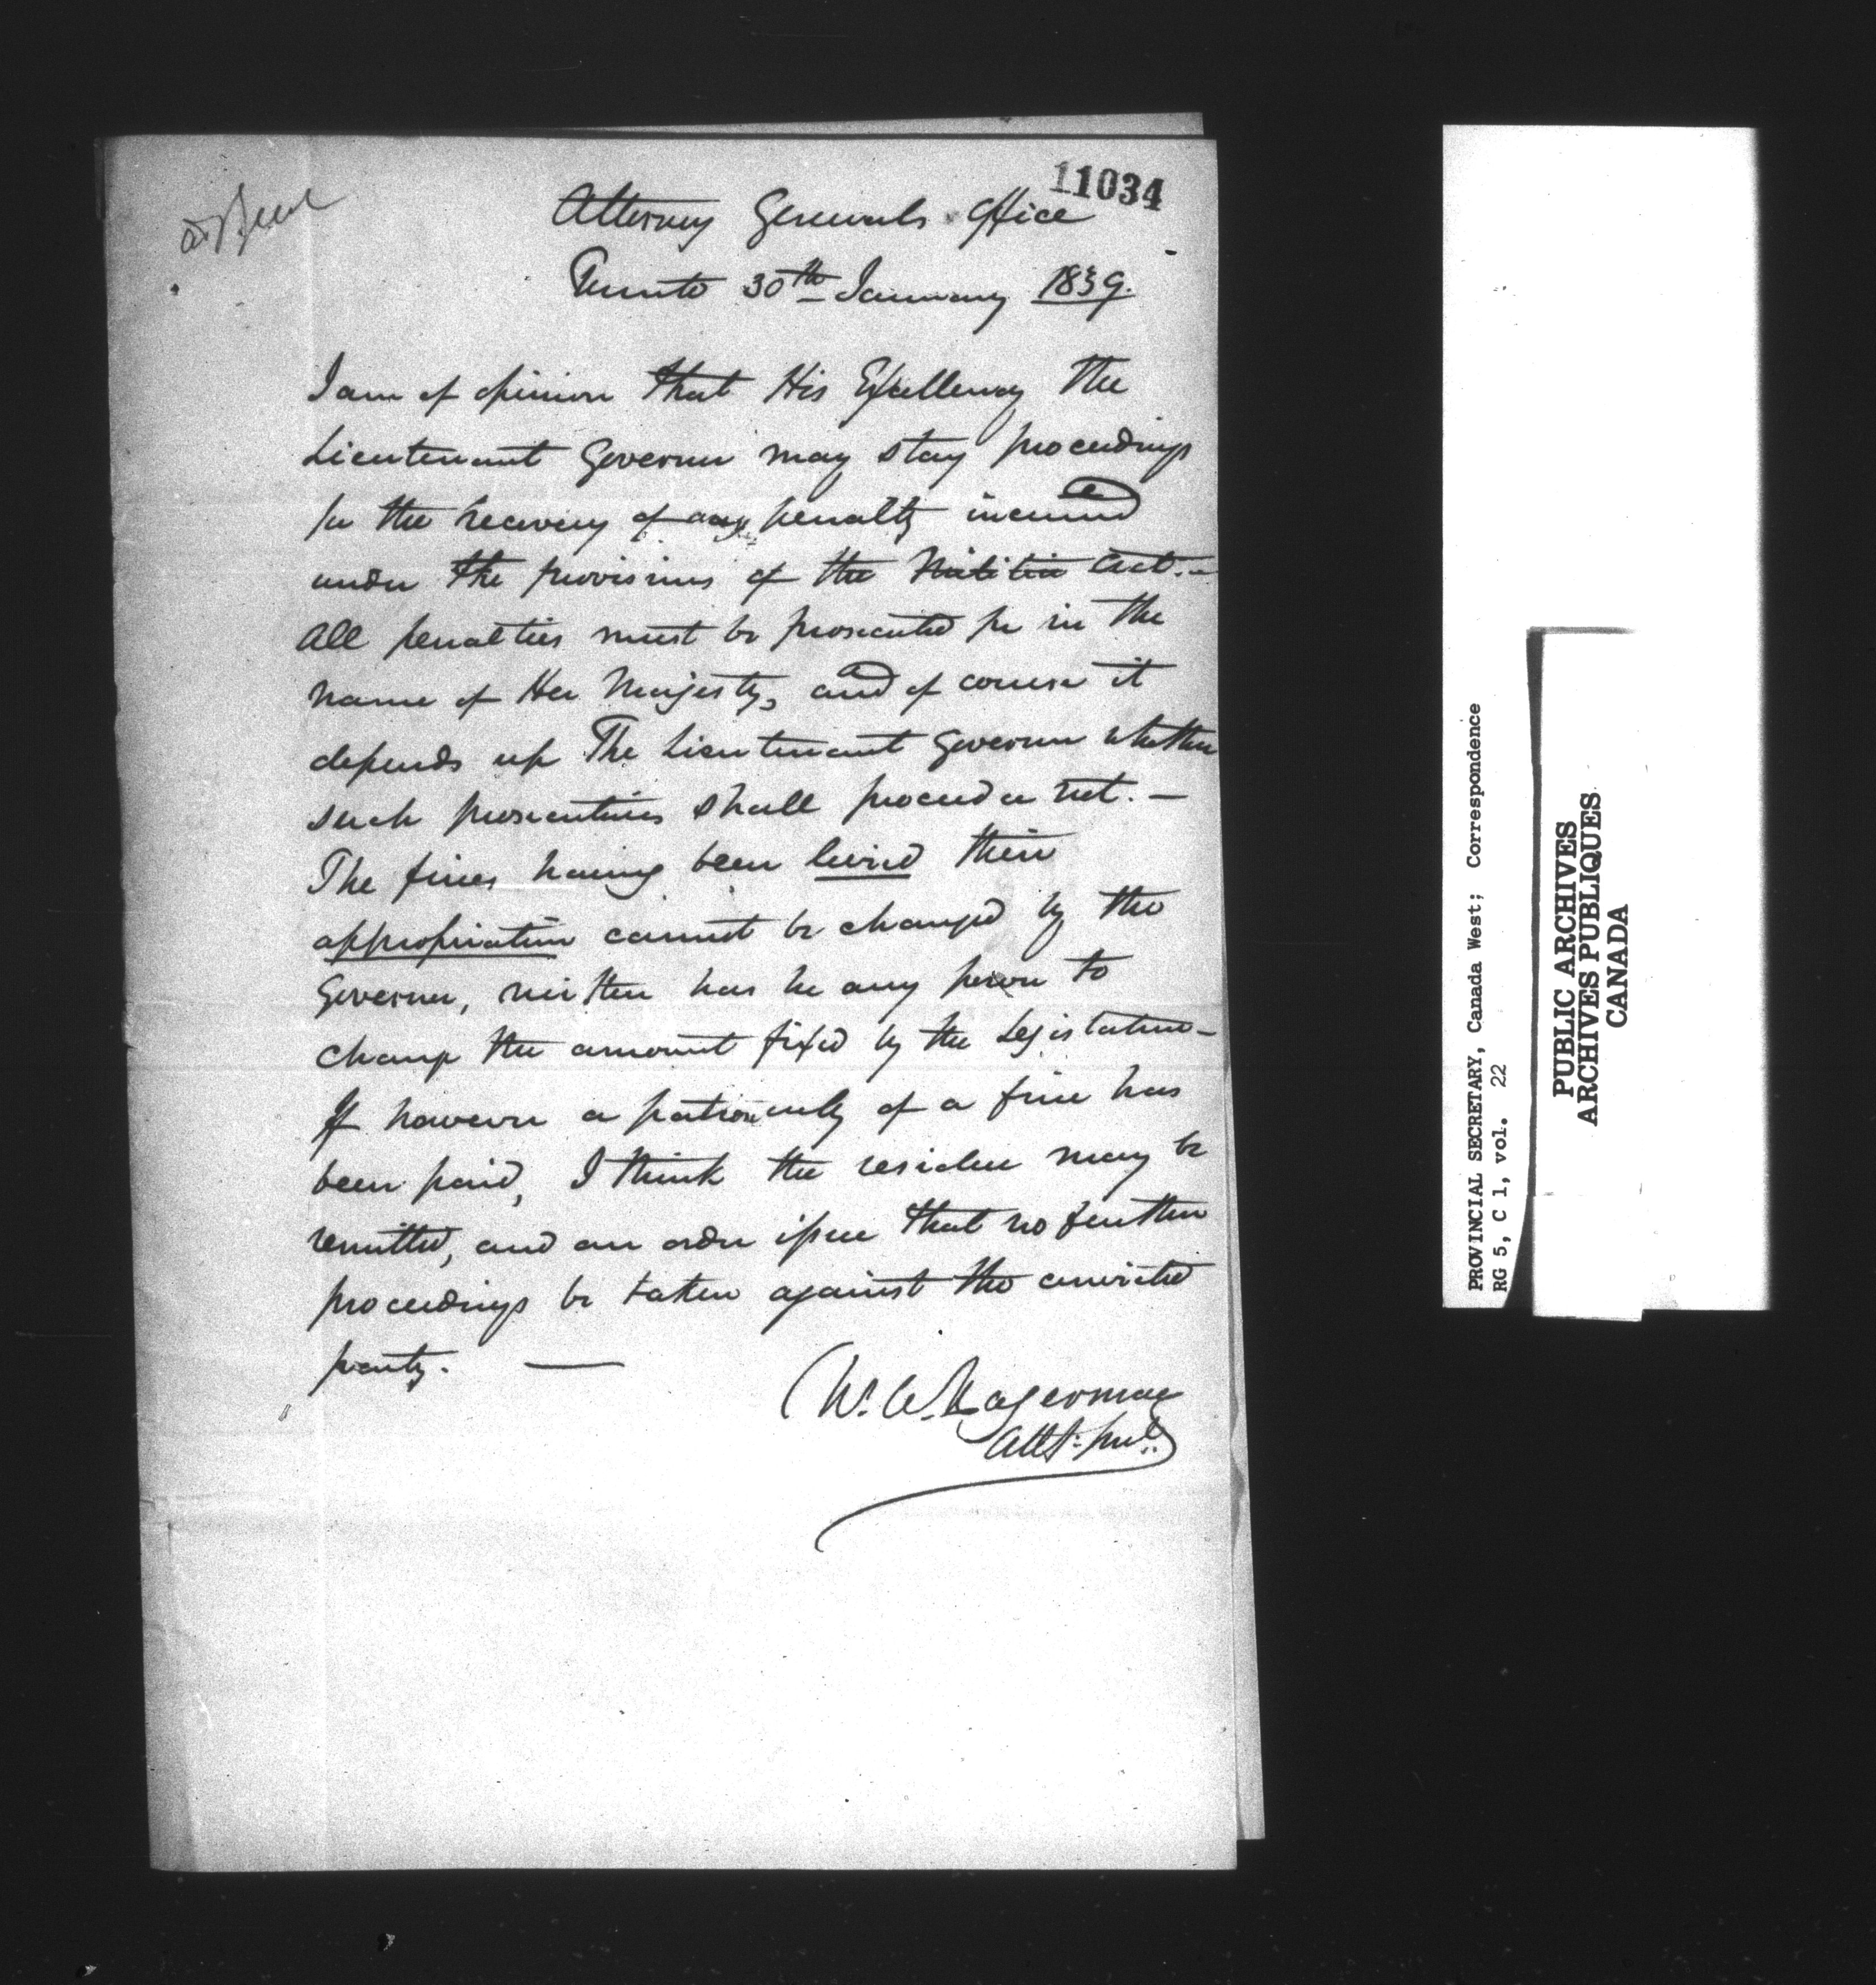 11034
Attorney Generals Office
Toronto 30th January 1839.
I am of opinion that His Excellency The
Lieutenant Governor may stay proceedings
for the recovery of any penalty incurred
under the provisions of the Militia Act.-
All penalties must be prosecuted for in the
name of Her Majesty, and of course it
depends up The Lieutenant Governor whether
such prosecutions shall proceed or not. —
The fines having been levied their
appropriation cannot be changed by the
Governor, neither has he any power to
change the amount fixed by the Legislature-
If however a portion only of a fine has
been paid, I think the residue may be
remitted, and an order issue that no further
proceedings be taken against the convicted
party. —
Hagerman
Atty: Genl:
PROVINCIAL SECRETARY, Canada West; Correspondence
RG 5, C 1, vol. 22
PUBLIC ARCHIVES
ARCHIVES PUBLIQUES
CANADA